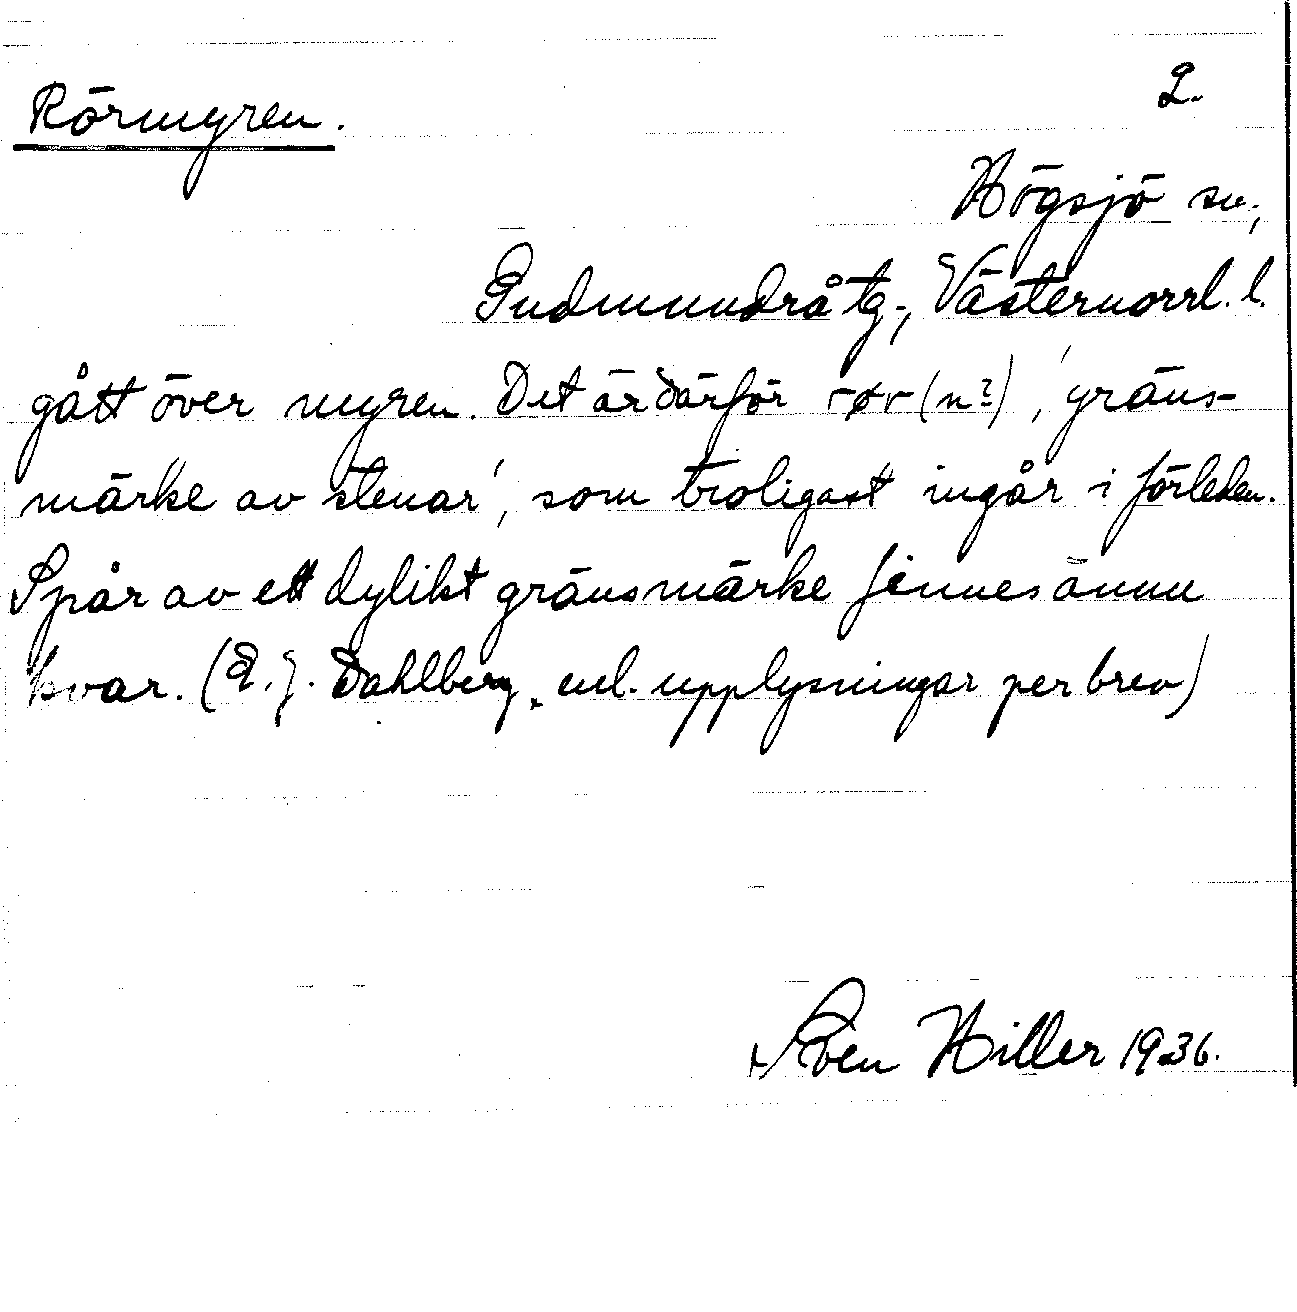 Rörmyren.
2.
Högsjö sn;
Gudmundrå tg.; Västernorrl. l.
gått över myren. Det är därför rør (n?), 'gräns-
märke av stenar', som troligast ingår i förleden.
Spår av ett dylikt gränsmärke finnes ännu
kvar. (E. J. Dahlberg, enl. upplysningar per brev)
Sven Hiller 1936.